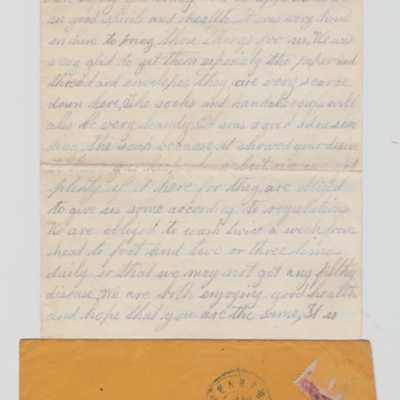 in good spirits and health. It was very kind
on him to bring those things for us. He was
very glad to get them especialy the paper and
thread and envelopes they are very scarce
down here, The socks and handkercep will
also be very handy, It was a good idea
the soap because it showed your desire
plenty of it here for they are
to give us some according to regulations
We are obliged to wash twice a week from
head to foot and two or three times
daily so that we may not get any filthy
disease, We are both enjoying good health
and hope that you are the same, It is